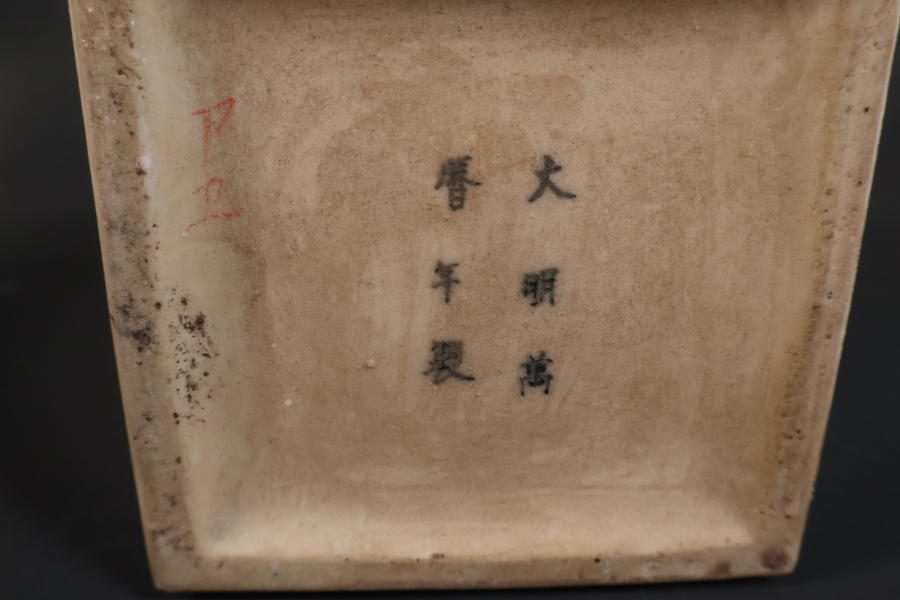 大明萬
暦年製